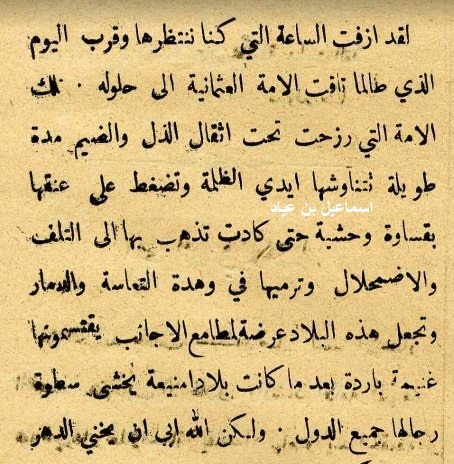 لقد ازفت الساعة التي كنا ننتظرها وقرب اليوم
الذي طالما تاقت الامة العثمانية الى حلوله . تلك
الامة التي رزحت تحت اثقال الذل والضيم مدة
طويلة تتناوشها ايدي الظلمة وتضغط على عنقها
اسماعيل بن عياد
بقساوة وحشية حتى كادت تذهب بها الى التلف
والاضمحلال وترميها في وهدة التعاسة والدمار
وتجعل هذه البلاد عرضة لمطامع الاجانب يقتسمونها
غنيمة باردة بعد ما كانت بلادا منيعة يخشى سطوة
رجالها جميع الدول . ولكن الله ابى ان يخني الدهر